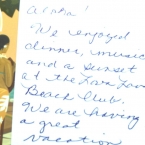 Aloha!
We enjoyed
dinner, music
and a sunset
at the Lava Lava
Beach Club.
We are having
a great
vacation